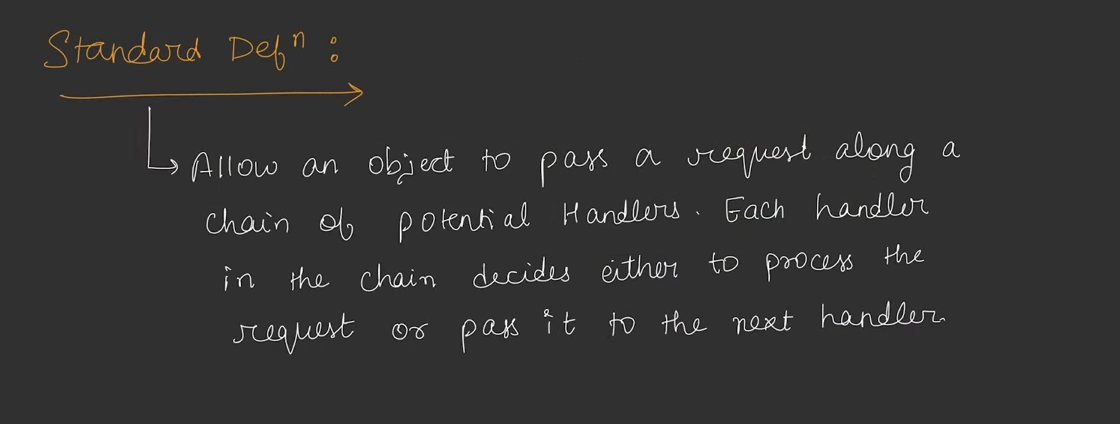 Standard Defⁿ :
Allow an object to pass a request along a
chain of potential Handlers. Each handler
in the chain decides either to process the
request or pass it to the next handler.